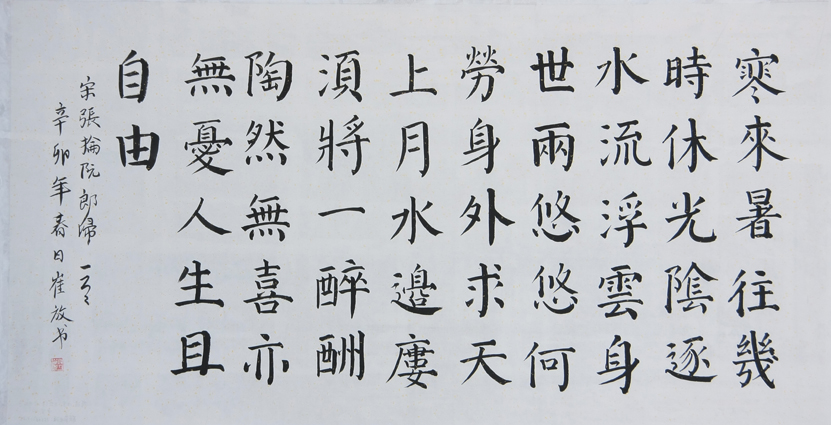 寒來暑往幾
時休光陰逐
水流浮雲身
世兩悠悠何
勞身外求天
上月水邊廔
須將一醉酬
陶然無喜亦
無憂人生且
自由
宋張掄阮郎歸 一
辛卯年春日崔放书